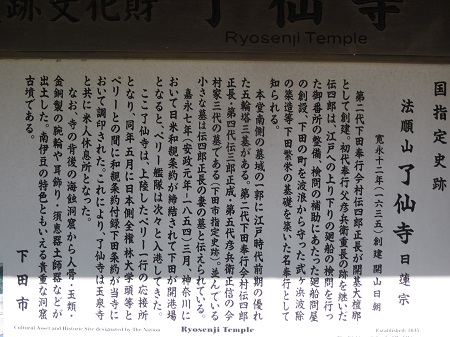 跡文化財 了仙寺
Ryosenji Temple
国指定史跡
法順山 了仙寺 日蓮宗
寛永十二年(一六三五)創建 開山 日朝
第二代下田奉行今村伝四郎正長が開基大檀那
として創建。初代奉行父彦兵衛重長の跡を継いだ
伝四郎は、江戸への上り下りの廻船の検問を行っ
た御番所の整備、検問の補助にあたった廻船問屋
の創設、下田の町を波浪から守った武ヶ浜波除
の築造等下田繁栄の基礎を築いた名奉行として
知られる。
本堂南側の墓域の一郭に江戸時代前期の優れ
た五輪塔三基がある。第二代下田奉行今村伝四郎
正長・第四代伝三郎正成・第五代彦兵衛正信の今
村家三代の墓である(下田市指定史跡)。並んでいる
小さな墓は伝四郎正長の妻の墓と伝えられている。
嘉永七年(安政元年・一八五四)三月、神奈川に
おいて日米和親条約が締結されて下田が開港場
となると、ペリー艦隊は次々と入港してきた。
ここ了仙寺は、上陸したペリー一行の応接所
となり、同年五月に日本側全権林大学頭等と
ペリーとの間に和親条約付録下田条約が当寺に
おいて調印された。これにより、了仙寺は玉泉寺
と共に米人休息所となった。
なお、寺の背後の海蝕洞窟から人骨・玉類・
金銅製の腕輪や耳飾り・須恵器土師器などが
出土した。南伊豆の特色ともいえる貴重な洞窟
古墳である。
下田市
Cultural Asset and Historic Site designated by The Nation
Ryosenji Temple
Established: 1635